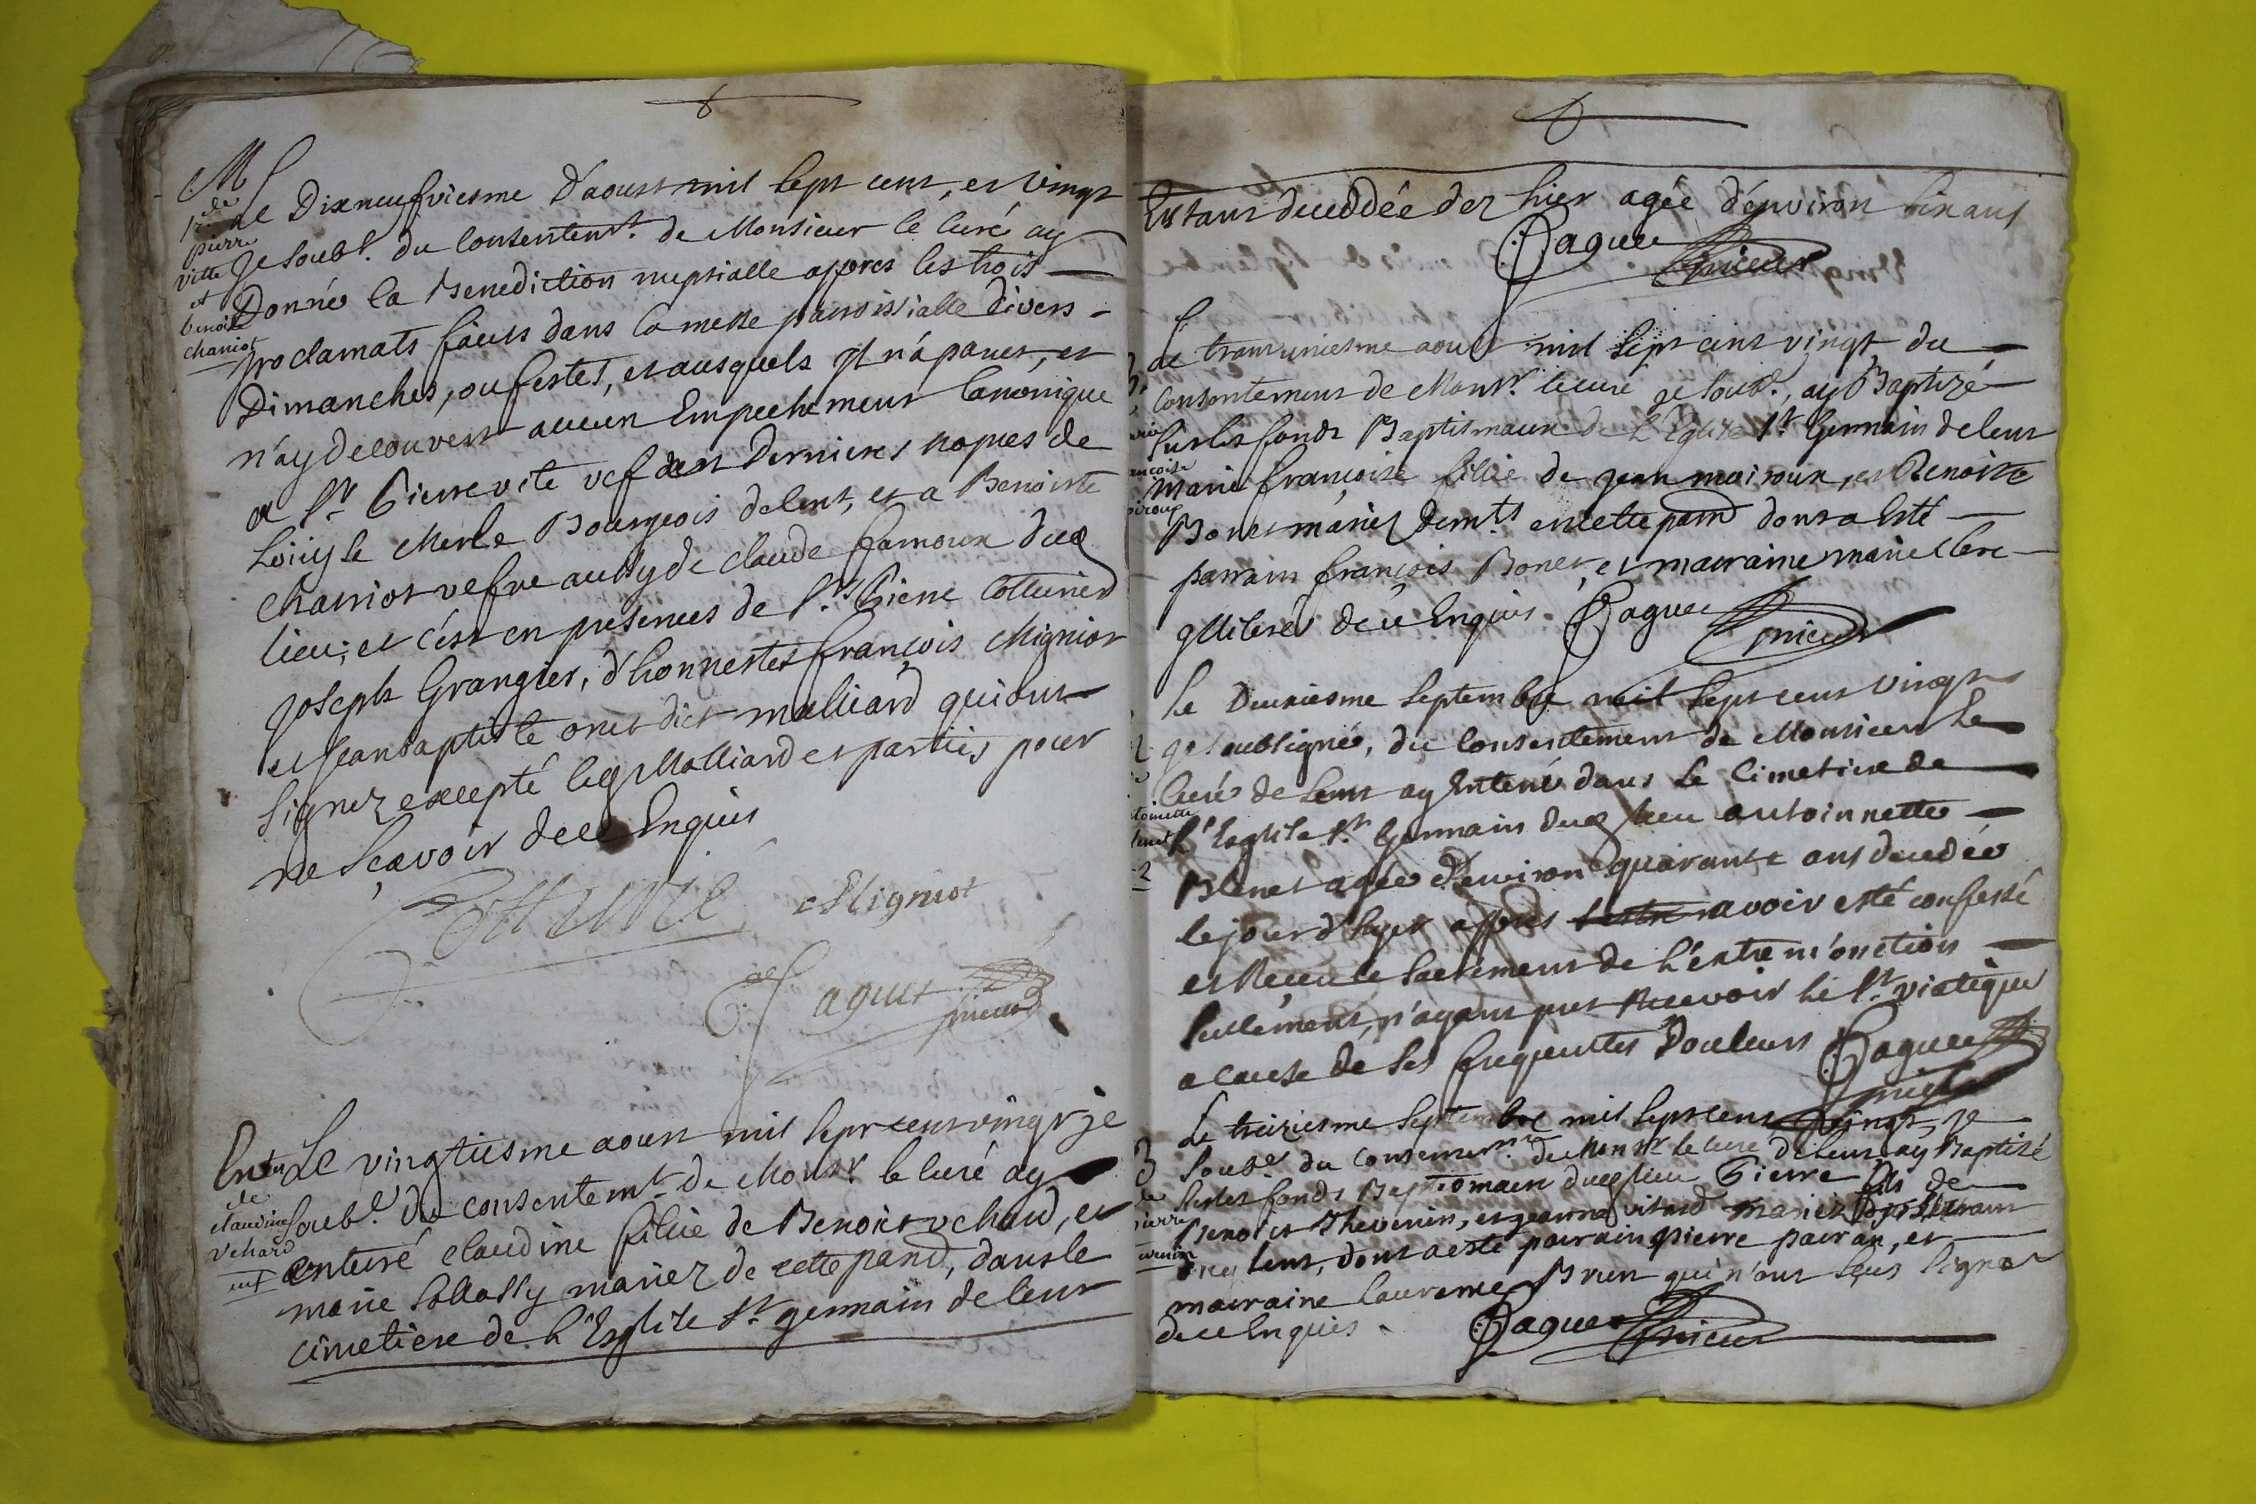 M
de
pierre
vitte
et
benoite
chaniot
Le Dixneufviesme d'aoust mil sept cent, et vingt
Je soubs. du consentemt. de Monsieur le curé ay
Donnée la Benediction nuptialle appres les trois
proclamats faicts dans la messe paroissialle divers
Dimanches, ou festes, et ausquels
n'ay decouvert aucun Empechement Canonique
a Sr. Pierre vite vef des Dernieres nopces de
Loüyse Merle Bourgeois de lent, et a Benoiste
chaniot vefve aussy de claude famoux dud
lieu; et c'est en présences de Sr. Pierre Cotturier
Joseph Grangier, d'honnestes françois Migniot
et Jeanbaptiste onet dict malliard qui ont
signez excepté led Malliard et parties pour
ne sçavoir de ce Enquis
Migniot
Paguet
prieur
Entmt
de
claudine
vehard
Le vingtiesme aoust mil sept cent vingt je
soubs. du consentemt. de Monsr. le curé ay
enterré claudine fillie de Benoict vehard, et
marie mariez de cette paroi, dans le
cimetiere de l'Esglise St. germain de lent
Estant deceddée dez hier agée d'environ six ans
Paguet
prieur
Le trantuniesme aoust mil sept cent vingt du
consentement de Monsr. le curé je soubs., ay Baptizé
sur les fonds Baptismaux de l'Eglise St. Germain de lent
Marie françoise fillie de jean moiroux, et Benoiste
Bonet mariez demts. en cette paroi dont a Esté
parrain françois Bonet, et marraine marie clere
de ce Enquis. Paguet
prieur
Le Deuxiesme septembre mil sept cent vingt
je soubsignée, du consentement de Monsieur Le
curé de Lent ay Enterré dans le Cimetiere de
l'Esglise St. Germain dud lieu antoinette
Benet agée d'environ quarante ans decedée
le jour d'hyer appres avoir esté confessé
et Receu le sacrement de l'extrem'onction
seulement, n'ayant put Recevoir le St. viatique
a cause de ses frequentes Douleurs Paguet
prieur
Le treiziesme septembre mil sept cent vingt, je
soubs. du consentemt. de Monsr. le curé de lent ay Baptisé
sur les fonds Baptismaux dud lieu Pierre fils de
Benoict Thevenin, et jeanne vitard mariez
lent, dont a esté parrain pierre pairan, et
marraine laurence Brun qui n'ont sçus signer
de ce Enquis. Paguet
prieur